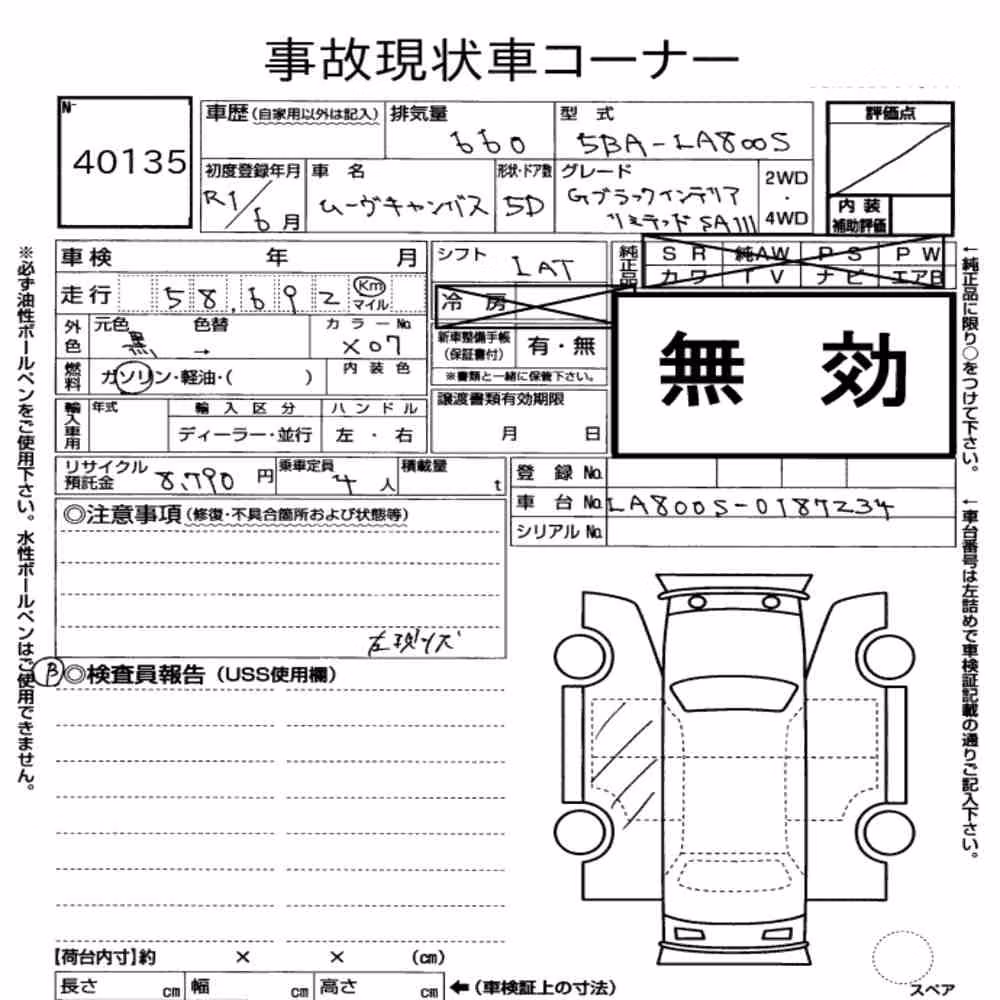 事故現状車コーナー
N-
40135
車歴(自家用以外は記入)
排気量
660
型 式
5BA-LA800S
評価点
初度登録年月
R1/6月
車 名
ムーヴキャンバス
形状・ドア数
5D
グレード
Gブラックインテリア
リミテッド SAIII
2WD
・
4WD
内 装
補助評価
車検 年 月
シフト
IAT
純正品
SR 純AW PS PW
カワ TV ナビ エアB
走行 58,692 Km
マイル
冷 房
無 効
外色
元色 色替
黒 →
カラーNo.
X07
新車整備手帳
(保証書付)
有・無
※書類と一緒に保管下さい。
燃料
ガソリン・軽油・( )
内装色
輸入車用
年式
輸入区分
ハンドル
ディーラー・並行
左・右
譲渡書類有効期限
月 日
リサイクル
預託金
8,790 円
乗車定員
4 人
積載量
t
登録 No.
車台 No. LA800S-0187234
シリアル No.
◎注意事項(修復・不具合箇所および状態等)
β
◎検査員報告(USS使用欄)
【荷台内寸】約 × × (cm)
長さ cm 幅 cm 高さ cm
←(車検証上の寸法)
スペア
※必ず油性ボールペンをご使用下さい。水性ボールペンはご使用できません。
←純正品に限り○をつけて下さい。
←車台番号は左詰めで車検証記載の通りご記入下さい。